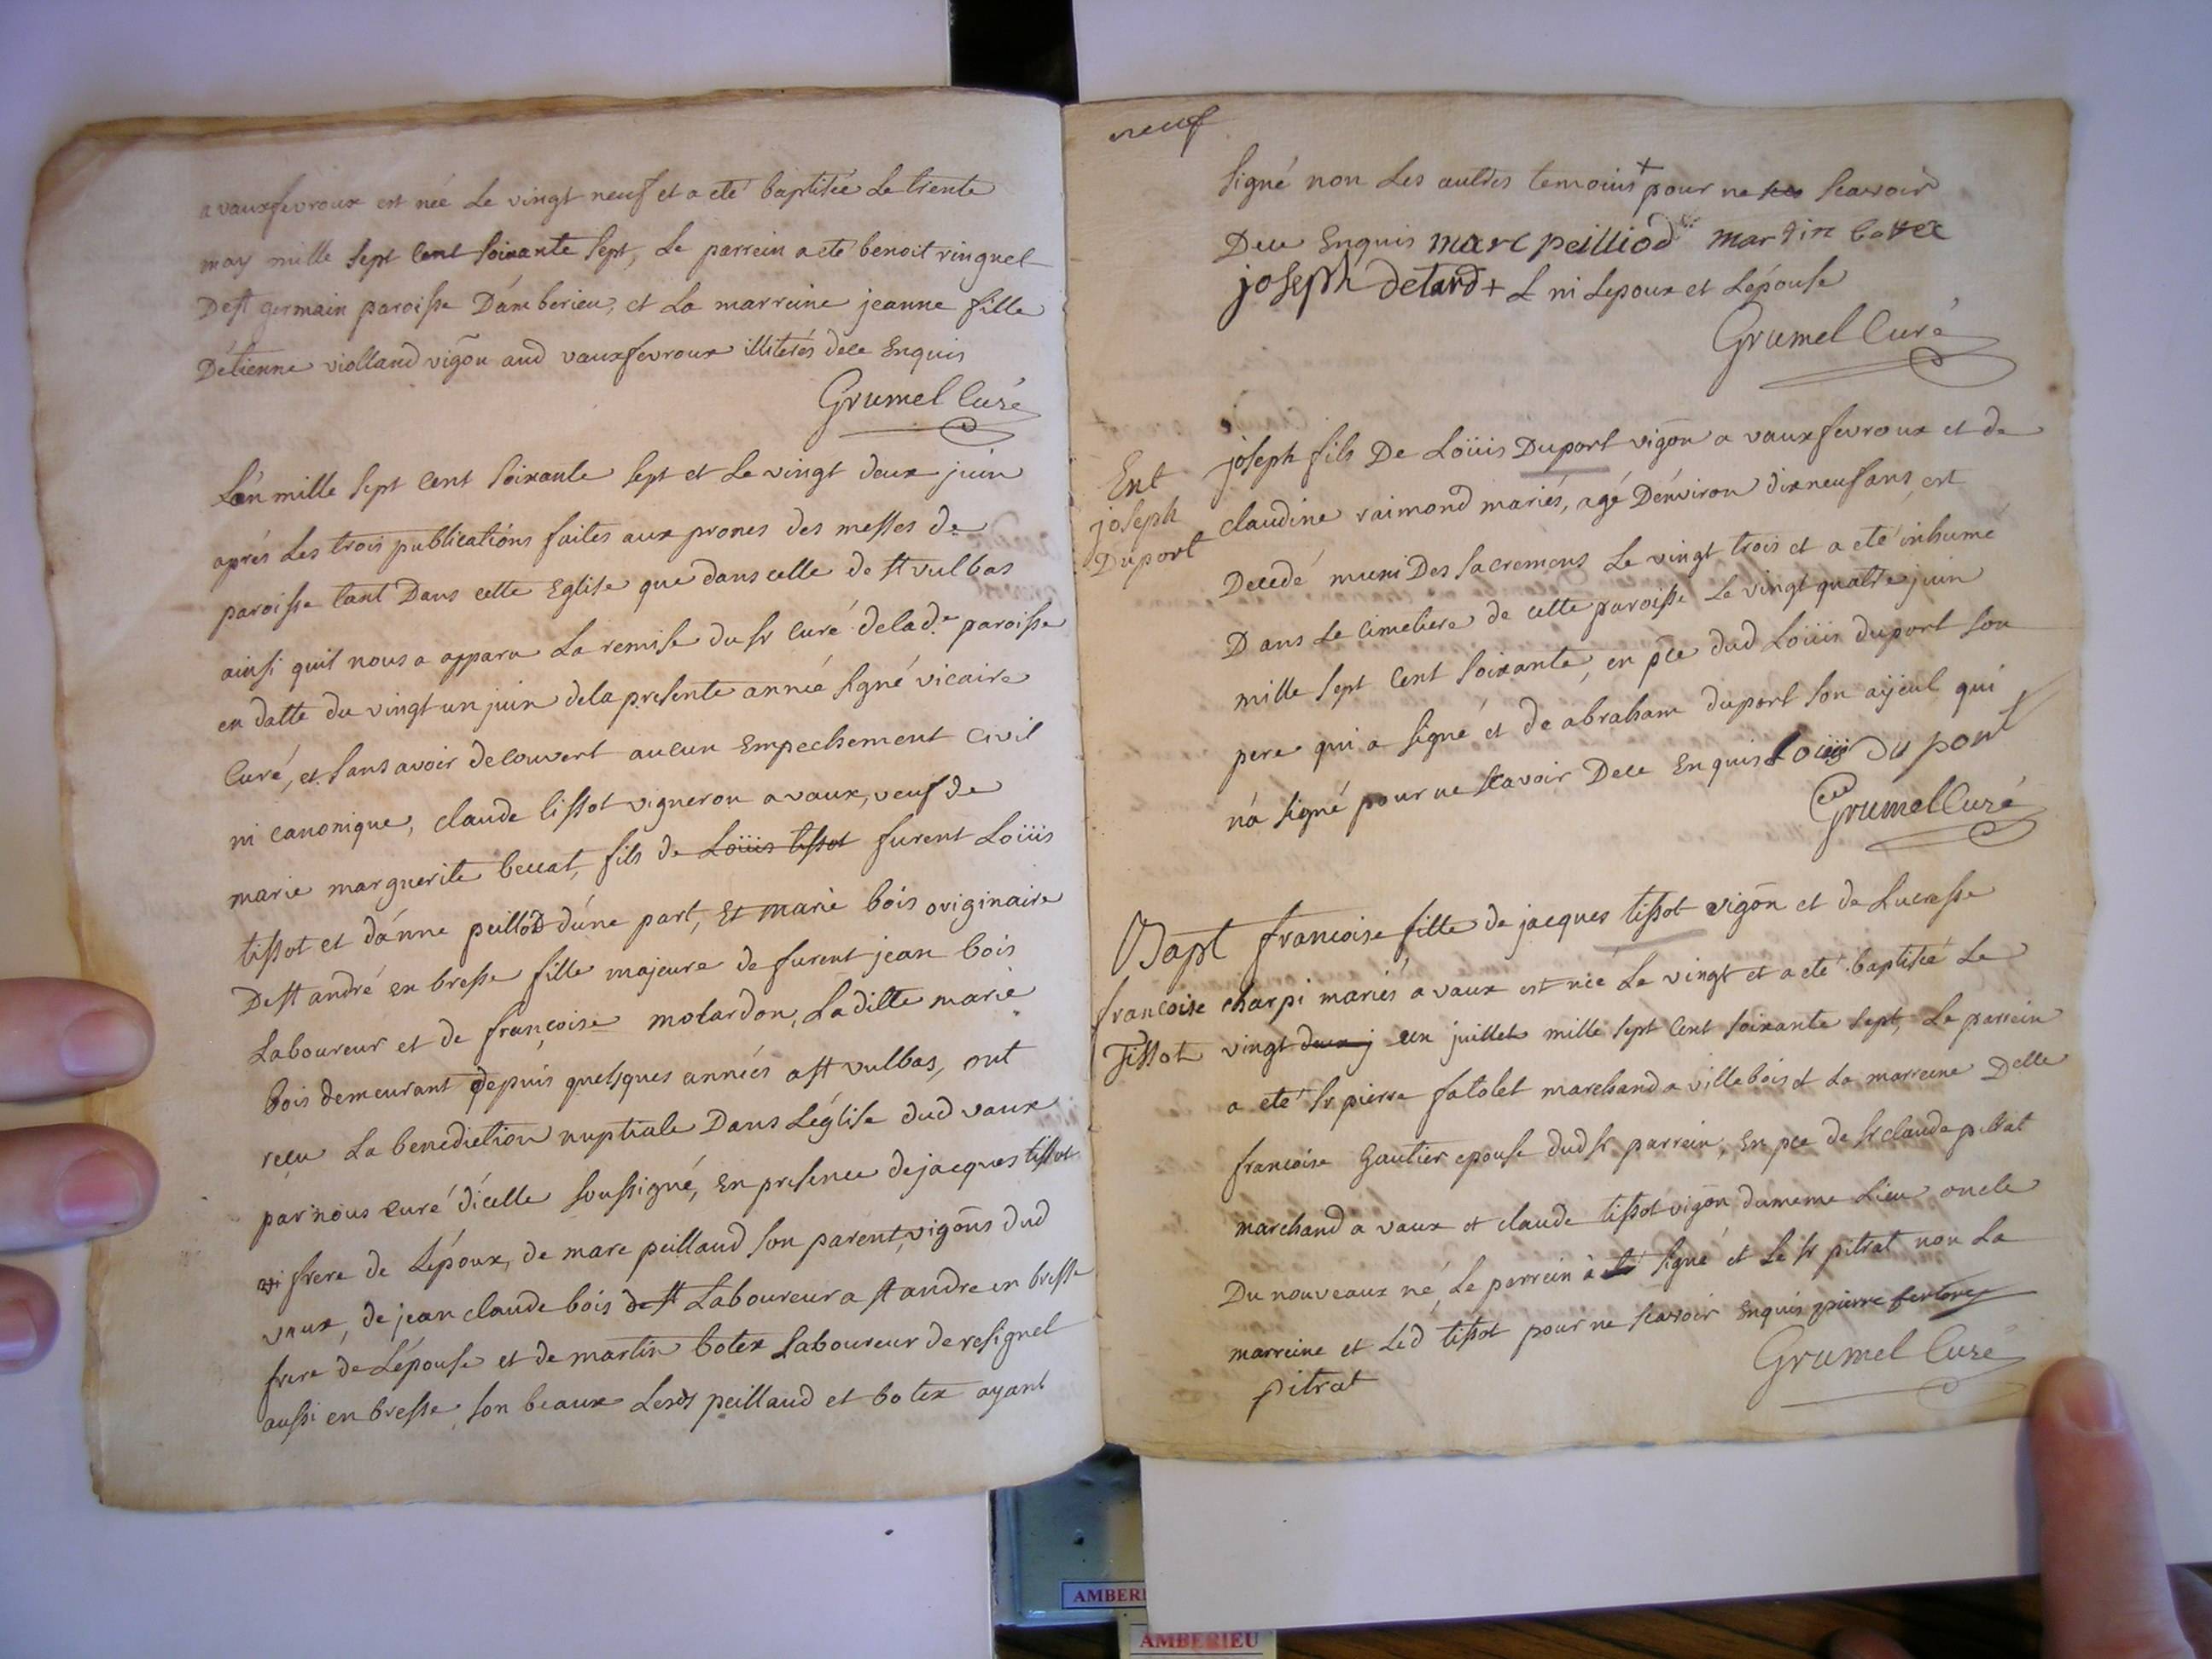 a vauxfevroux est née le vingt neuf et a eté baptisée le trente
may mille sept cent soixante sept, le parrein a eté benoit ringuel
De st germain paroisse D'amberieu, et la marreine jeanne fille
D'etienne violland vigōn aud vauxfevroux illiterés dece Enquis
Grumel Curé
L'an mille sept cent soixante sept et le vingt deux juin
aprés les trois publications faites aux prones des messes de
paroisse tant Dans cette Eglise que dans celle de st vulbas
ainsi quil nous a apparu la remise du sr curé delad.e paroisse
en datte du vingt un juin dela presente année signé vicaire
curé, et sans avoir decouvert aucun Empechement civil
ni canonique, claude tissot vigneron a vaux, veuf de
marie marguerite beccat, fils de Loüis tissot furent Loüis
tissot et d'anne peillod d'une part, Et marie bois originaire
De st andré en bresse fille majeure de furent jean bois
Laboureur et de françoise molardon, Laditte marie
bois demeurant depuis quelsques années a st vulbas, ont
reçu la benediction nuptiale Dans L'église dud vaux
par nous curé d'icelle soussigné, En presence de jacques tissot
frere de L'époux, de marc peilland son parent, vigōns dud
vaux, de jean claude bois de st Laboureur a st andre en bresse
frere de L'épouse et de martin botex Laboureur de resignel
aussi en bresse son beaux Lesds peilland et botex ayant
neuf
signé non les autres temoins + pour ne scavoir
Dece Enquis marc peilliod martin botex
joseph detard + & ni Lepoux et Lépouse
Grumel Curé
Ent
joseph
Duport
joseph fils De Loüis Duport vigōn a vauxfevroux et de
claudine raimond mariés, agé D'environ dixneuf ans, est
Decedé muni Des sacremens le vingt trois et a eté inhumé
Dans le cimetiere de cette paroisse le vingt quatre juin
mille sept cent soixante, en pce dud Loüis duport son
pere qui a signé et de abraham duport son aÿeul qui
n'a signé pour ne scavoir Dece Enquis Loüis du pont
Grumel Curé
Bapt
francoise
Tissot
francoise fille de jacques tissot vigōn et de Lucresse
charpi mariés a vaux est née le vingt et a eté baptisée le
vingt deux j un juillet mille sept cent soixante sept, le parrein
a eté sr pierre fatolet marchand a villebois et la marreine Delle
francoise Gautier epouse dud sr parrein, En pce de sr claude pitrat
marchand a vaux et claude tissot vigōn dumeme Lieu oncle
Du nouveaux né, Le parrein à signé et le sr pitrat non la
marreine et led tissot pour ne scavoir Enquis pierre
pitrat
Grumel Curé
AMBERI
AMBERIEU